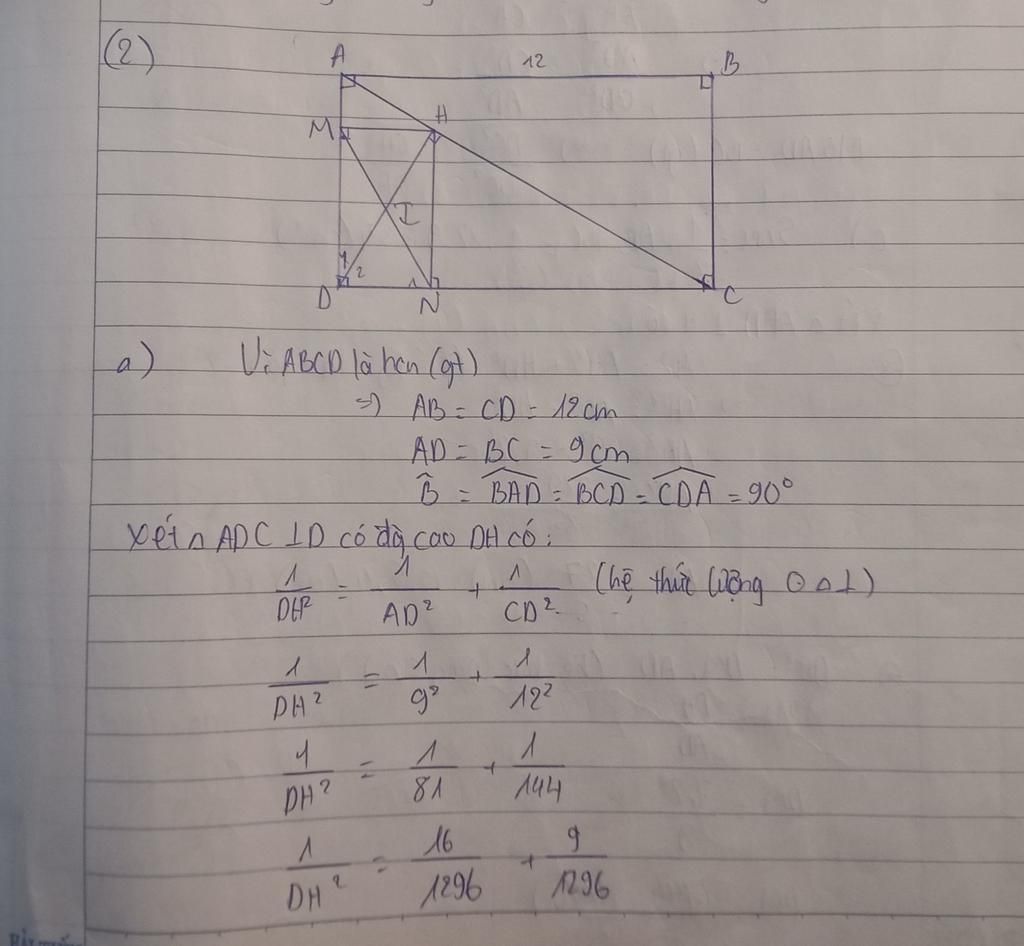 (2)
A 12 B
M H
I
1 2 1
D N C
a) Vì ABCD là hcn (gt)
=) AB = CD = 12cm
AD = BC = 9cm
B̂ = \widehat{BAD} = \widehat{BCD} = \widehat{CDA} = 90°
Xét ▵ ADC ⊥ D có đg cao DH có:
1/DH² = 1/AD² + 1/CD² (hệ thức lượng ⊙ ▵ ⊥)
1/DH² = 1/9² + 1/12²
1/DH² = 1/81 + 1/144
1/DH² = 16/1296 + 9/1296